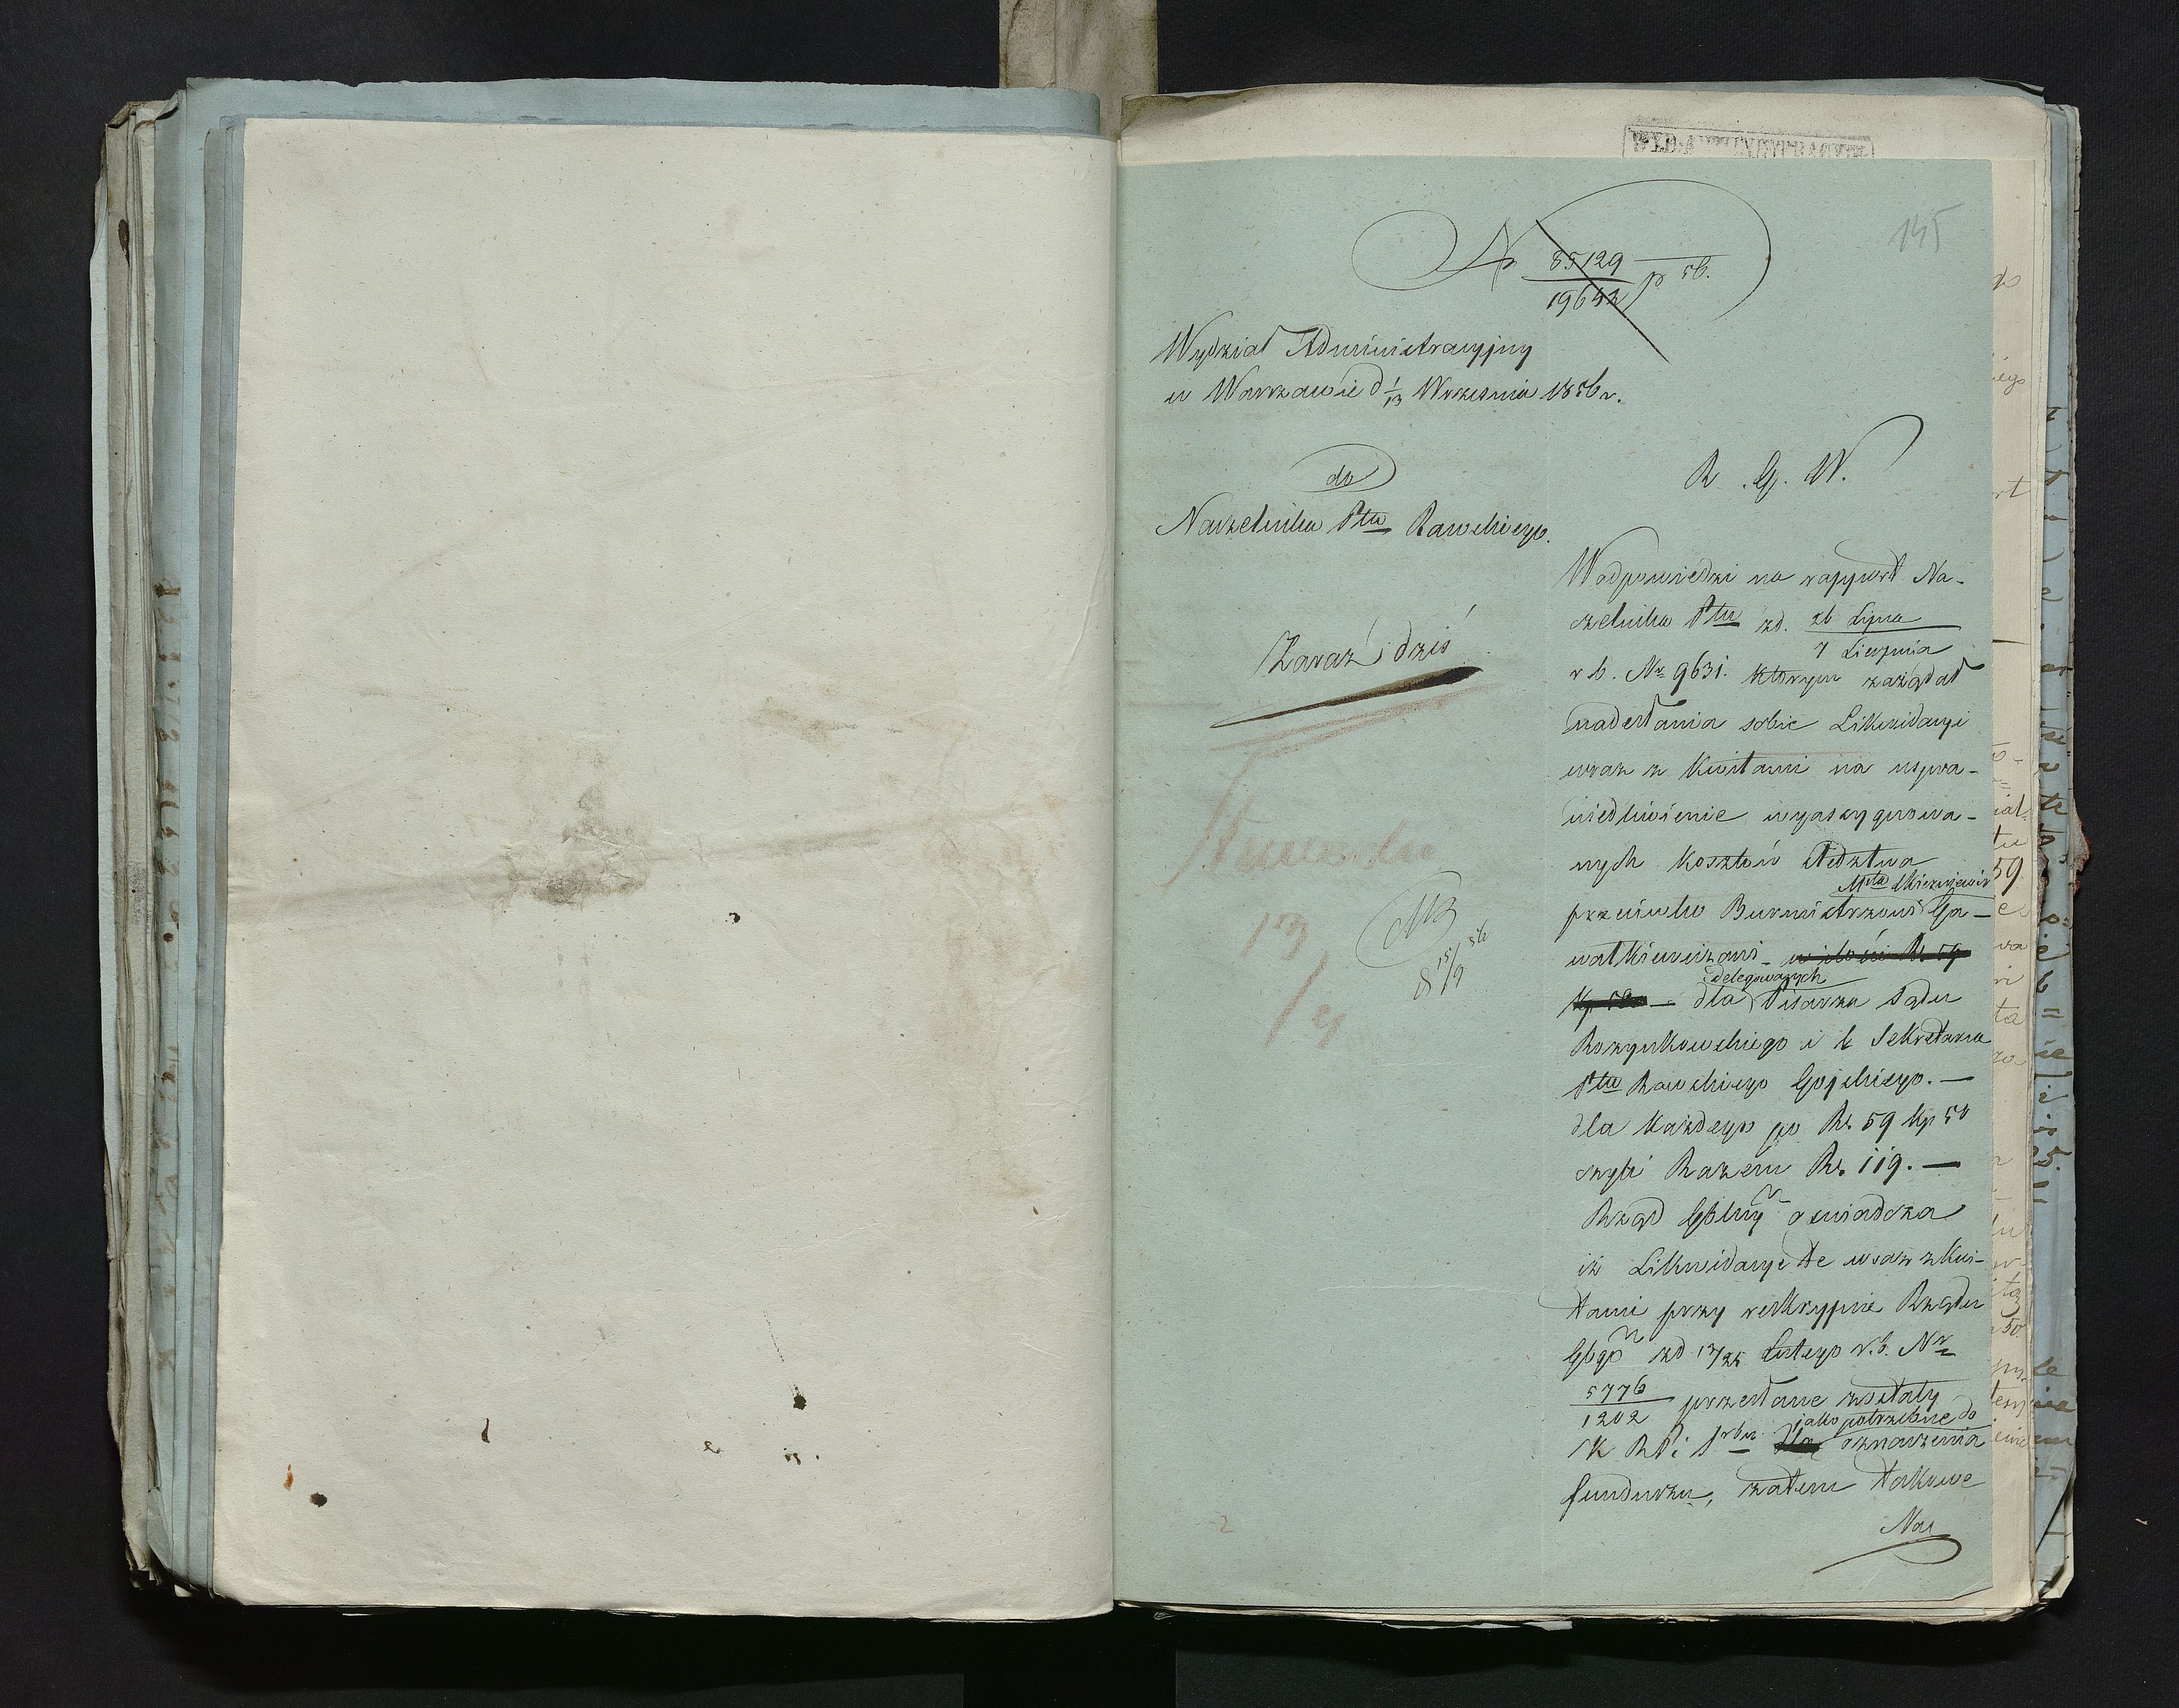 145
N 85129 / 19642 p 56.
Wydział Administracyjny
w Warszawie d 1/13 Września 1856 r.
do
Naczelnika Ptu Rawskiego.
R. G. W.
Zaraz dziś
13/9
15/9 56
W odpowiedzi na rapport Na-
czelnika Ptu zd. 26 Lipca / 7 Sierpnia
r b. Nr 9631. którym zażądał
nadesłania sobie Likwidacyi
wraz z kwitami na uspra-
wiedliwienie wyassygnowa-
nych kosztów śledztwa
przeciwko Burmistrzowi Mta Skierniewic Ga-
watkiewiczowi
dla delegowanych Pisarza Sądu
Roszynkowskiego i b Sekretarza
Ptu Rawskiego Gojskiego. —
dla każdego po Rs. 59 kp 50
czyli Razem Rs. 119. —
Rząd Gblny oświadcza
iż Likwidacye te wraz z kwi-
tami przy reskrypcie Rządu
Gbgo zd 13/25 Lutego r.b. Nr
5776 / 1202 przesłane zostały
K R P i S jako potrzebne do oznaczenia
funduszu, zatem takowe
Nac